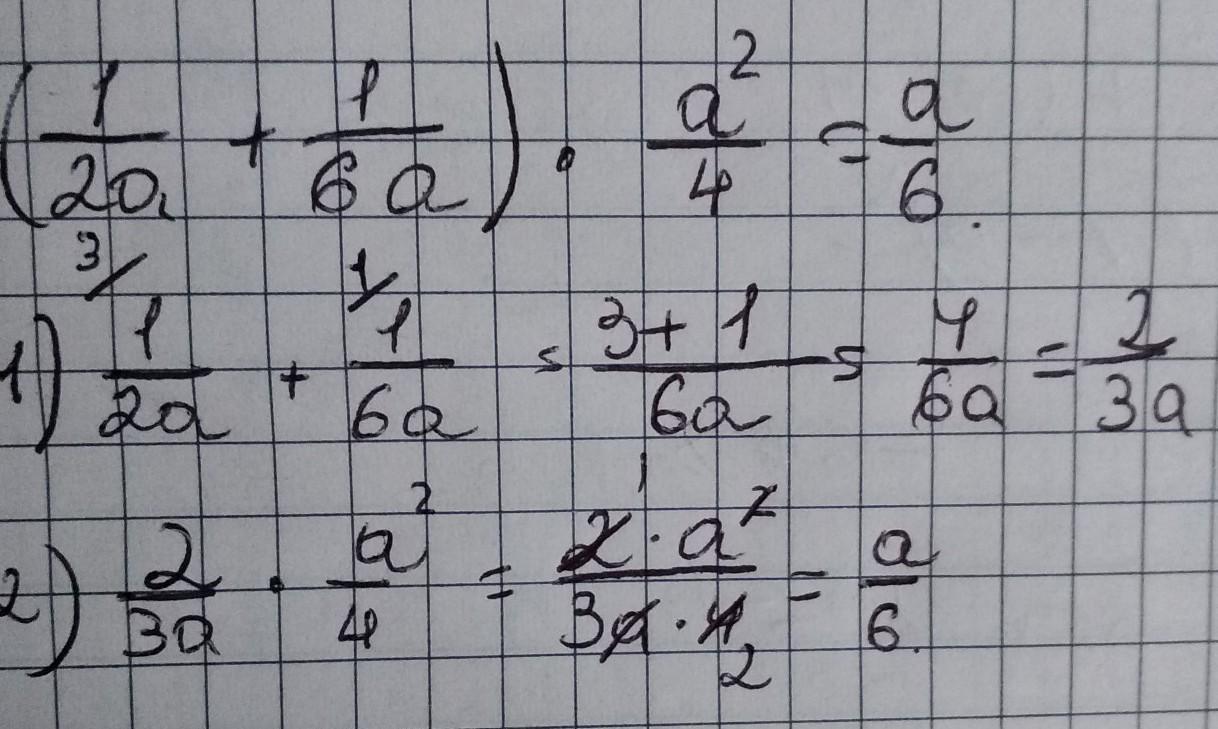 (1/2a + 1/6a) · a²/4 = a/6.
1) ³/ 1/2a + ¹/ 1/6a = 3+1/6a = 4/6a = 2/3a
2) 2/3a · a²/4 = 2¹·a²/3a·4₂ = a/6.